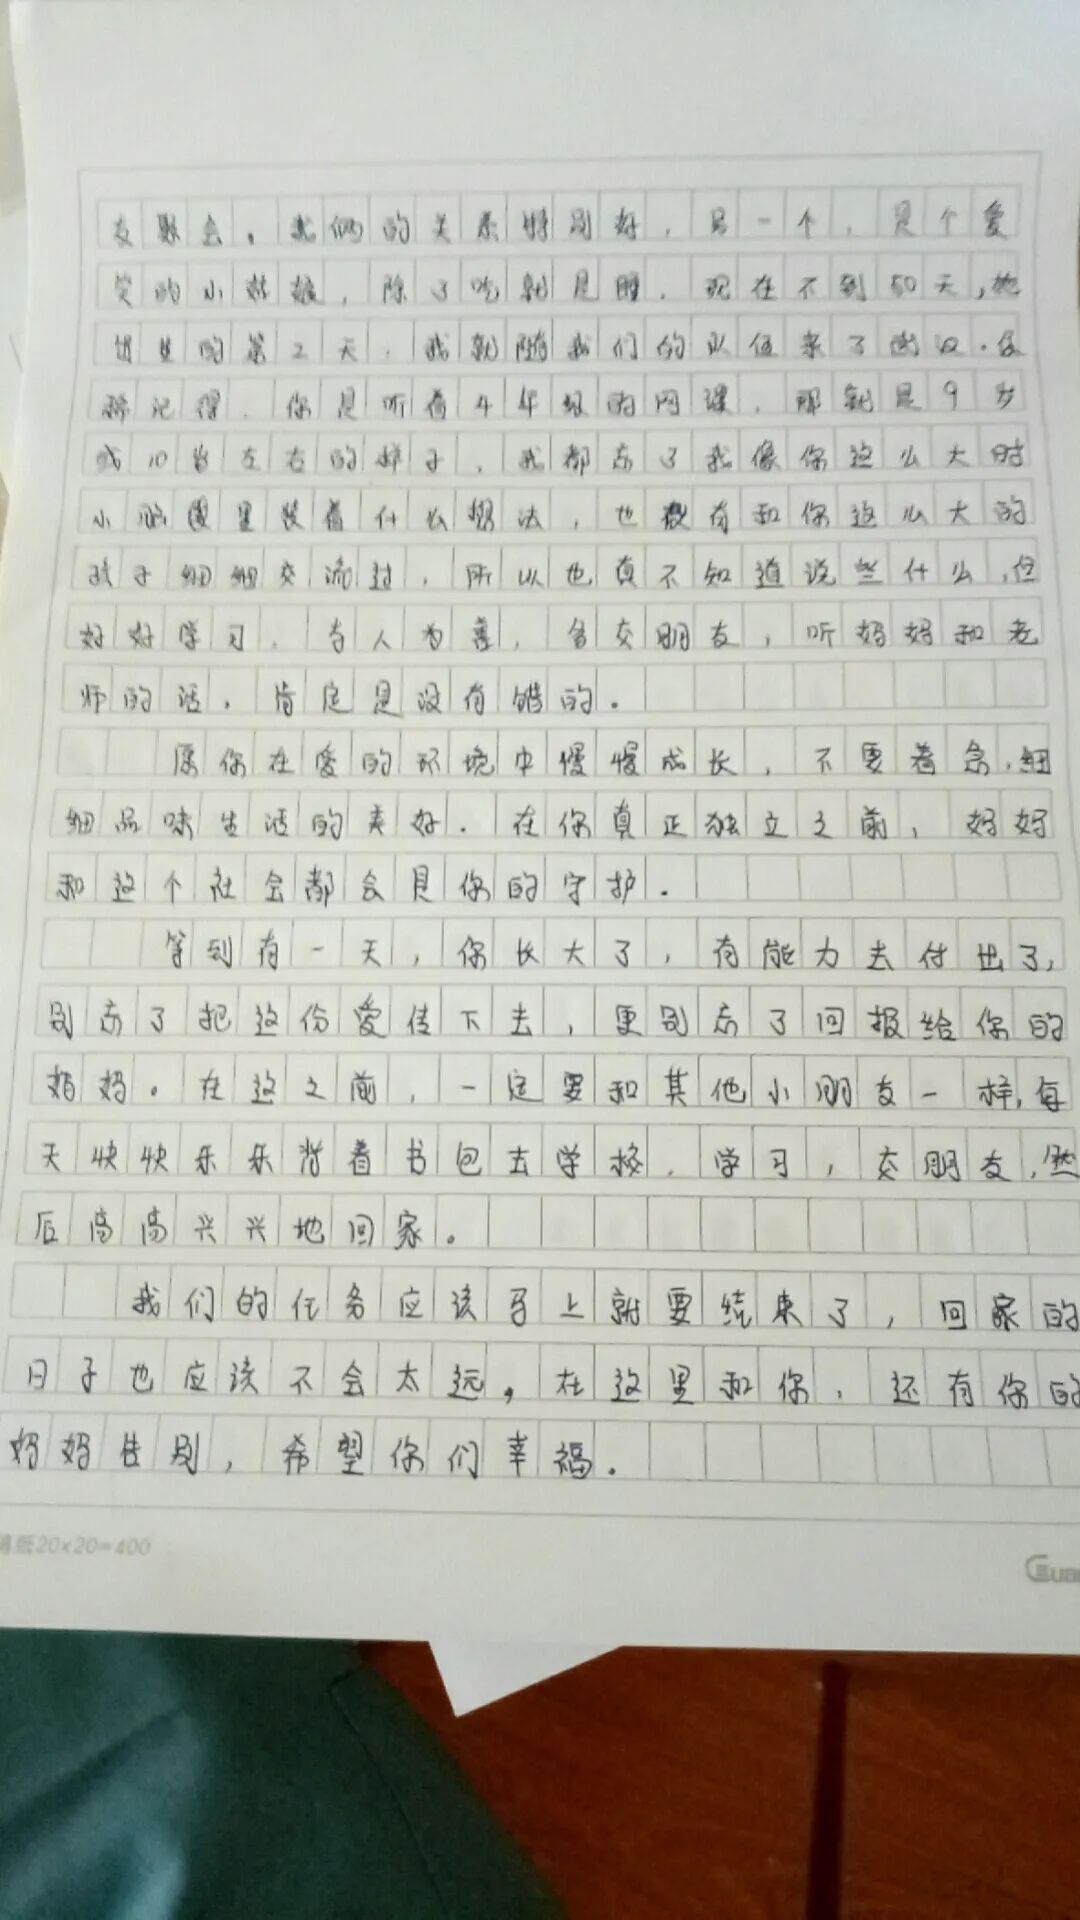 友聚会。我俩的关系特别好，另一个，是个爱
笑的小姑娘，除了吃就是睡，现在不到50天，她
出生的第2天，我就随我们的队伍来了武汉。依
稀记得，你是听着4年级的网课，那就是9岁
或10岁左右的样子，我都忘了我像你这么大时
小脑袋里装着什么想法，也没有和你这么大的
孩子细细交流过，所以也真不知道说些什么，但
好好学习，与人为善，多交朋友，听妈妈和老
师的话，肯定是没有错的。
愿你在爱的环境中慢慢成长，不要着急，细
细品味生活的美好。在你真正独立之前，妈妈
和这个社会都会是你的守护。
等到有一天，你长大了，有能力去付出了，
别忘了把这份爱传下去，更别忘了回报给你的
妈妈。在这之前，一定要和其他小朋友一样，每
天快快乐乐背着书包去学校，学习，交朋友，然
后高高兴兴地回家。
我们的任务应该马上就要结束了，回家的
日子也应该不会太远，在这里和你，还有你的
妈妈告别，希望你们幸福。
稿纸20×20=400